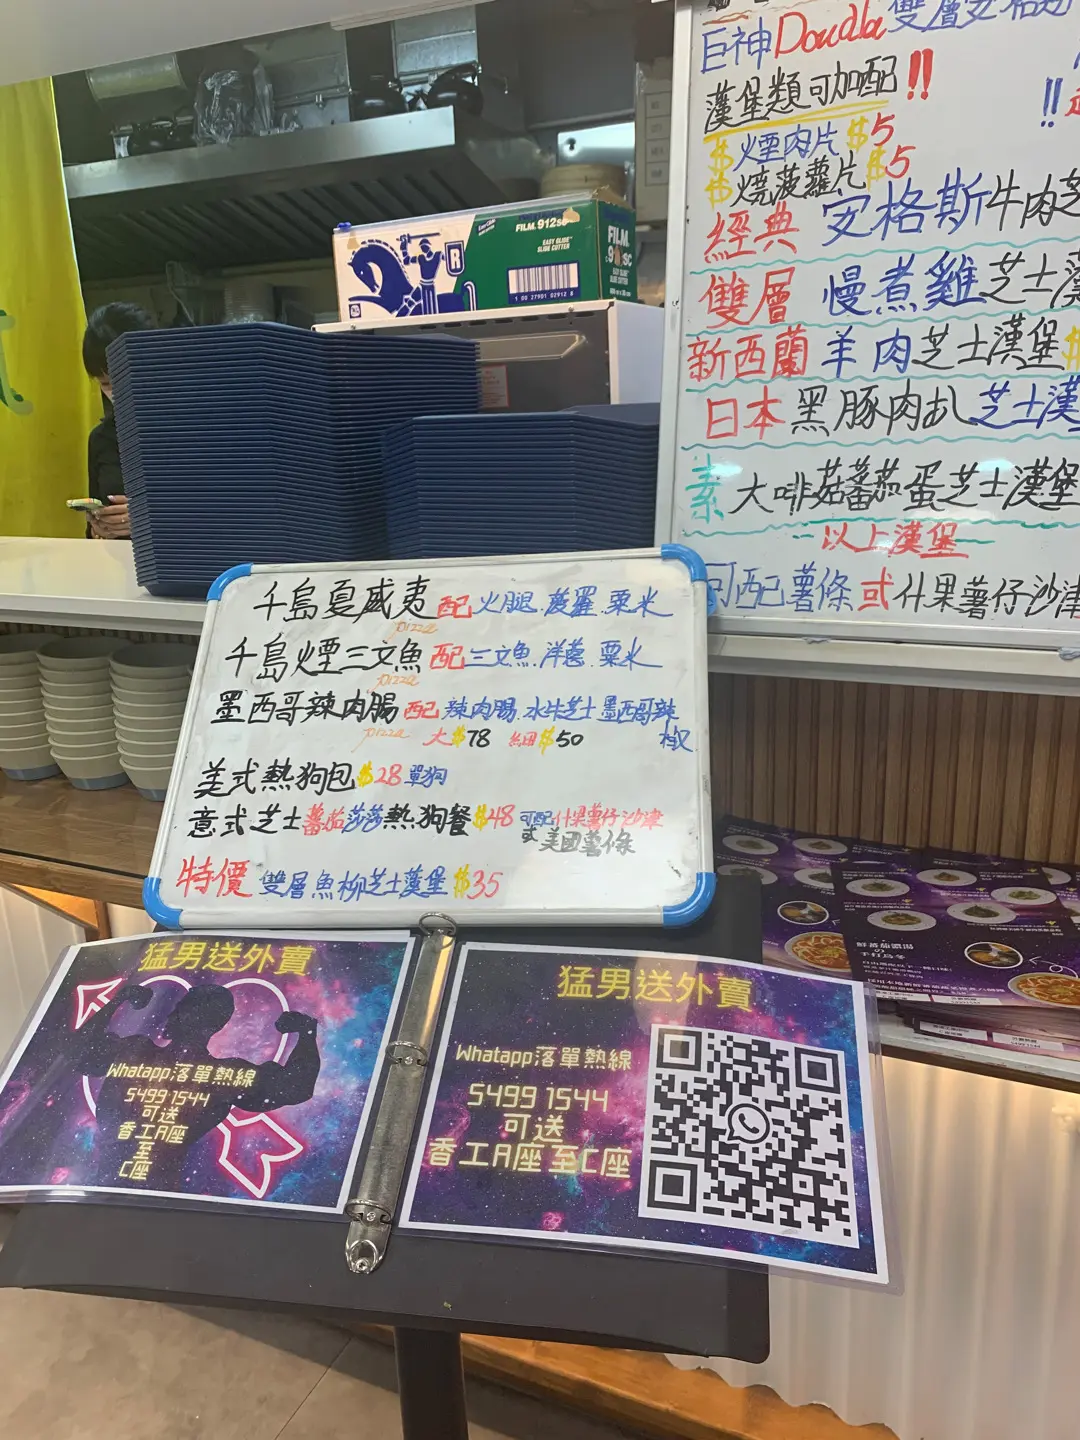 巨神Double雙層安格斯
漢堡類可加配!!
$煙肉片$5
$燒菠蘿片$5
經典 安格斯牛肉芝
雙層 慢煮雞芝士漢
新西蘭 羊肉芝士漢堡$
日本黑豚肉扒芝士漢
素 大啡菇蕃茄蛋芝士漢堡
以上漢堡
可配薯條或什果薯仔沙津
FILM 912SC
EASY GLIDE
SLIDE CUTTER
1 00 27901 02912 8
R
FILM
千島夏威夷配火腿.菠羅.粟米
pizza
千島煙三文魚配三文魚.洋蔥.粟米
pizza
墨西哥辣肉腸配辣肉腸.水牛芝士墨西哥辣椒
pizza 大$78 細$50
美式熱狗包$28單狗
意式芝士蕃茄莎莎熱狗餐$48可配什果薯仔沙津
或美國薯條
特價 雙層魚柳芝士漢堡$35
猛男送外賣
Whatapp落單熱線
5499 1544
可送
香工A座
至
C座
猛男送外賣
Whatapp落單熱線
5499 1544
可送
香工A座至C座
鮮蕃茄濃湯
の
手打烏冬